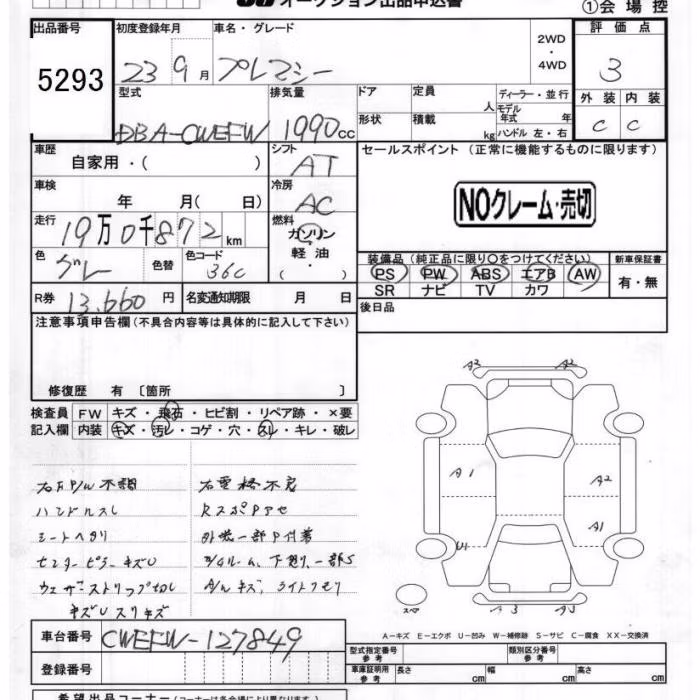 オークション出品申込書
①会場控
出品番号
5293
初度登録年月
車名・グレード
2WD
・
4WD
評価点
23 9月
プレマシー
3
型式
排気量
ドア
定員
人
ディーラー・並行
モデル年式 年
外装 内装
DBA-CWEFW
1990cc
形状
積載
kg
ハンドル 左・右
C C
車歴
自家用・( )
シフト
AT
セールスポイント (正常に機能するものに限ります)
車検
年 月( 日)
冷房
AC
NOクレーム・売切
走行
19万0千872km
燃料
ガソリン
軽油
・( )
色
グレー
色替
色コード
36C
装備品(純正品に限り○をつけてください)
新車保証書
PS PW ABS エアB AW
SR ナビ TV カワ
有・無
R券
13,660円
名変通知期限 月 日
後日品
注意事項申告欄(不具合内容等は具体的に記入して下さい)
修復歴 有 〔箇所 〕
検査員
記入欄
FW キズ・飛石・ヒビ割・リペア跡・×要
内装 キズ・汚レ・コゲ・穴・スレ・キレ・破レ
右FP/W不調
ハンドルスレ
シートヘタリ
センターピラーキズU
ウェザーストリップ切レ
キズUスリキズ
右電格不良
RスポPアセ
外装一部P付着
下廻リ一部S
A/Wキズ、ライトクモリ
A2 A2
A1
A2
A1
U1
A3 A3
スペア
A-キズ E-エクボ U-凹み W-補修跡 S-サビ C-腐食 XX-交換済
車台番号
CWEFW-127849
登録番号
型式指定番号
参考
類別区分番号
参考
車庫証明用
参考
長さ cm
幅 cm
高さ cm
希望出品コーナー(コーナーは各会場により異なります)